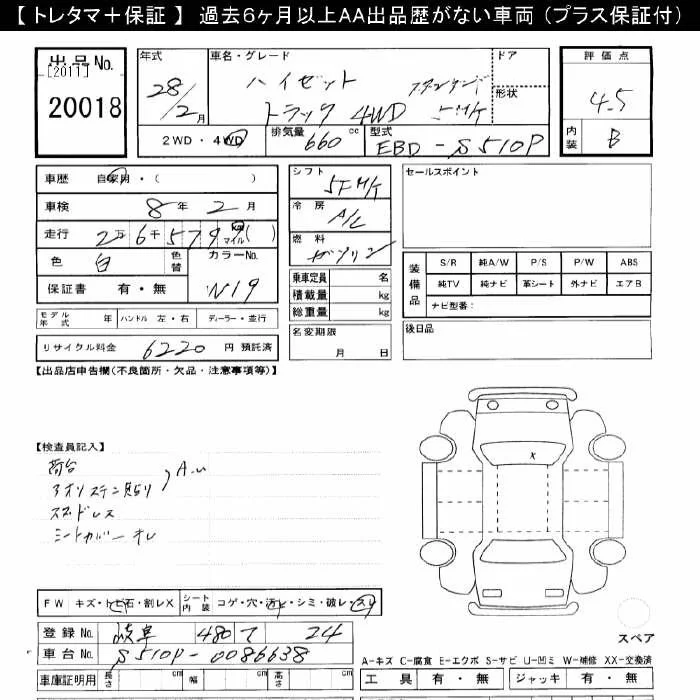 【トレタマ＋保証】 過去6ヶ月以上AA出品歴がない車両（プラス保証付）
出品No.
[2011]
20018
年式 28/2月
車名・グレード ハイゼット
トラック 4WD
ドア
形状
5M/T
2WD・4WD 排気量 660cc 型式 EBD-S510P
評価点
4.5
内装 B
車歴 自家用・( )
車検 8年 2月
走行 2万6千579 km マイル( )
色 白 色替 カラーNo.
N19
保証書 有・無
モデル年式 年 ハンドル 左・右 ディーラー・並行
リサイクル料金 6220 円 預託済
シフト 5FM/T
冷房 A/C
燃料 ガソリン
乗車定員 名
積載量 kg
総重量 kg
名変期限
月 日
セールスポイント
装備品
S/R 純A/W P/S P/W ABS
純TV 純ナビ 革シート 外ナビ エアB
ナビ型番：
後日品
【出品店申告欄(不良箇所・欠品・注意事項等)】
【検査員記入】
荷台
アオリステン貼り
A.u
スタッドレス
シートカバー オレ
X
FW キズ・トビ石・割レX シート内装 コゲ・穴・汚レ・シミ・破レ・スリ
登録No. 岐阜 480 て 24
車台No. S510P-0086638
車庫証明用 長さ cm 幅 cm 高さ cm
スペア
A-キズ C-腐食 E-エクボ S-サビ U-凹ミ W-補修 XX-交換済
工具 有・無 ジャッキ 有・無